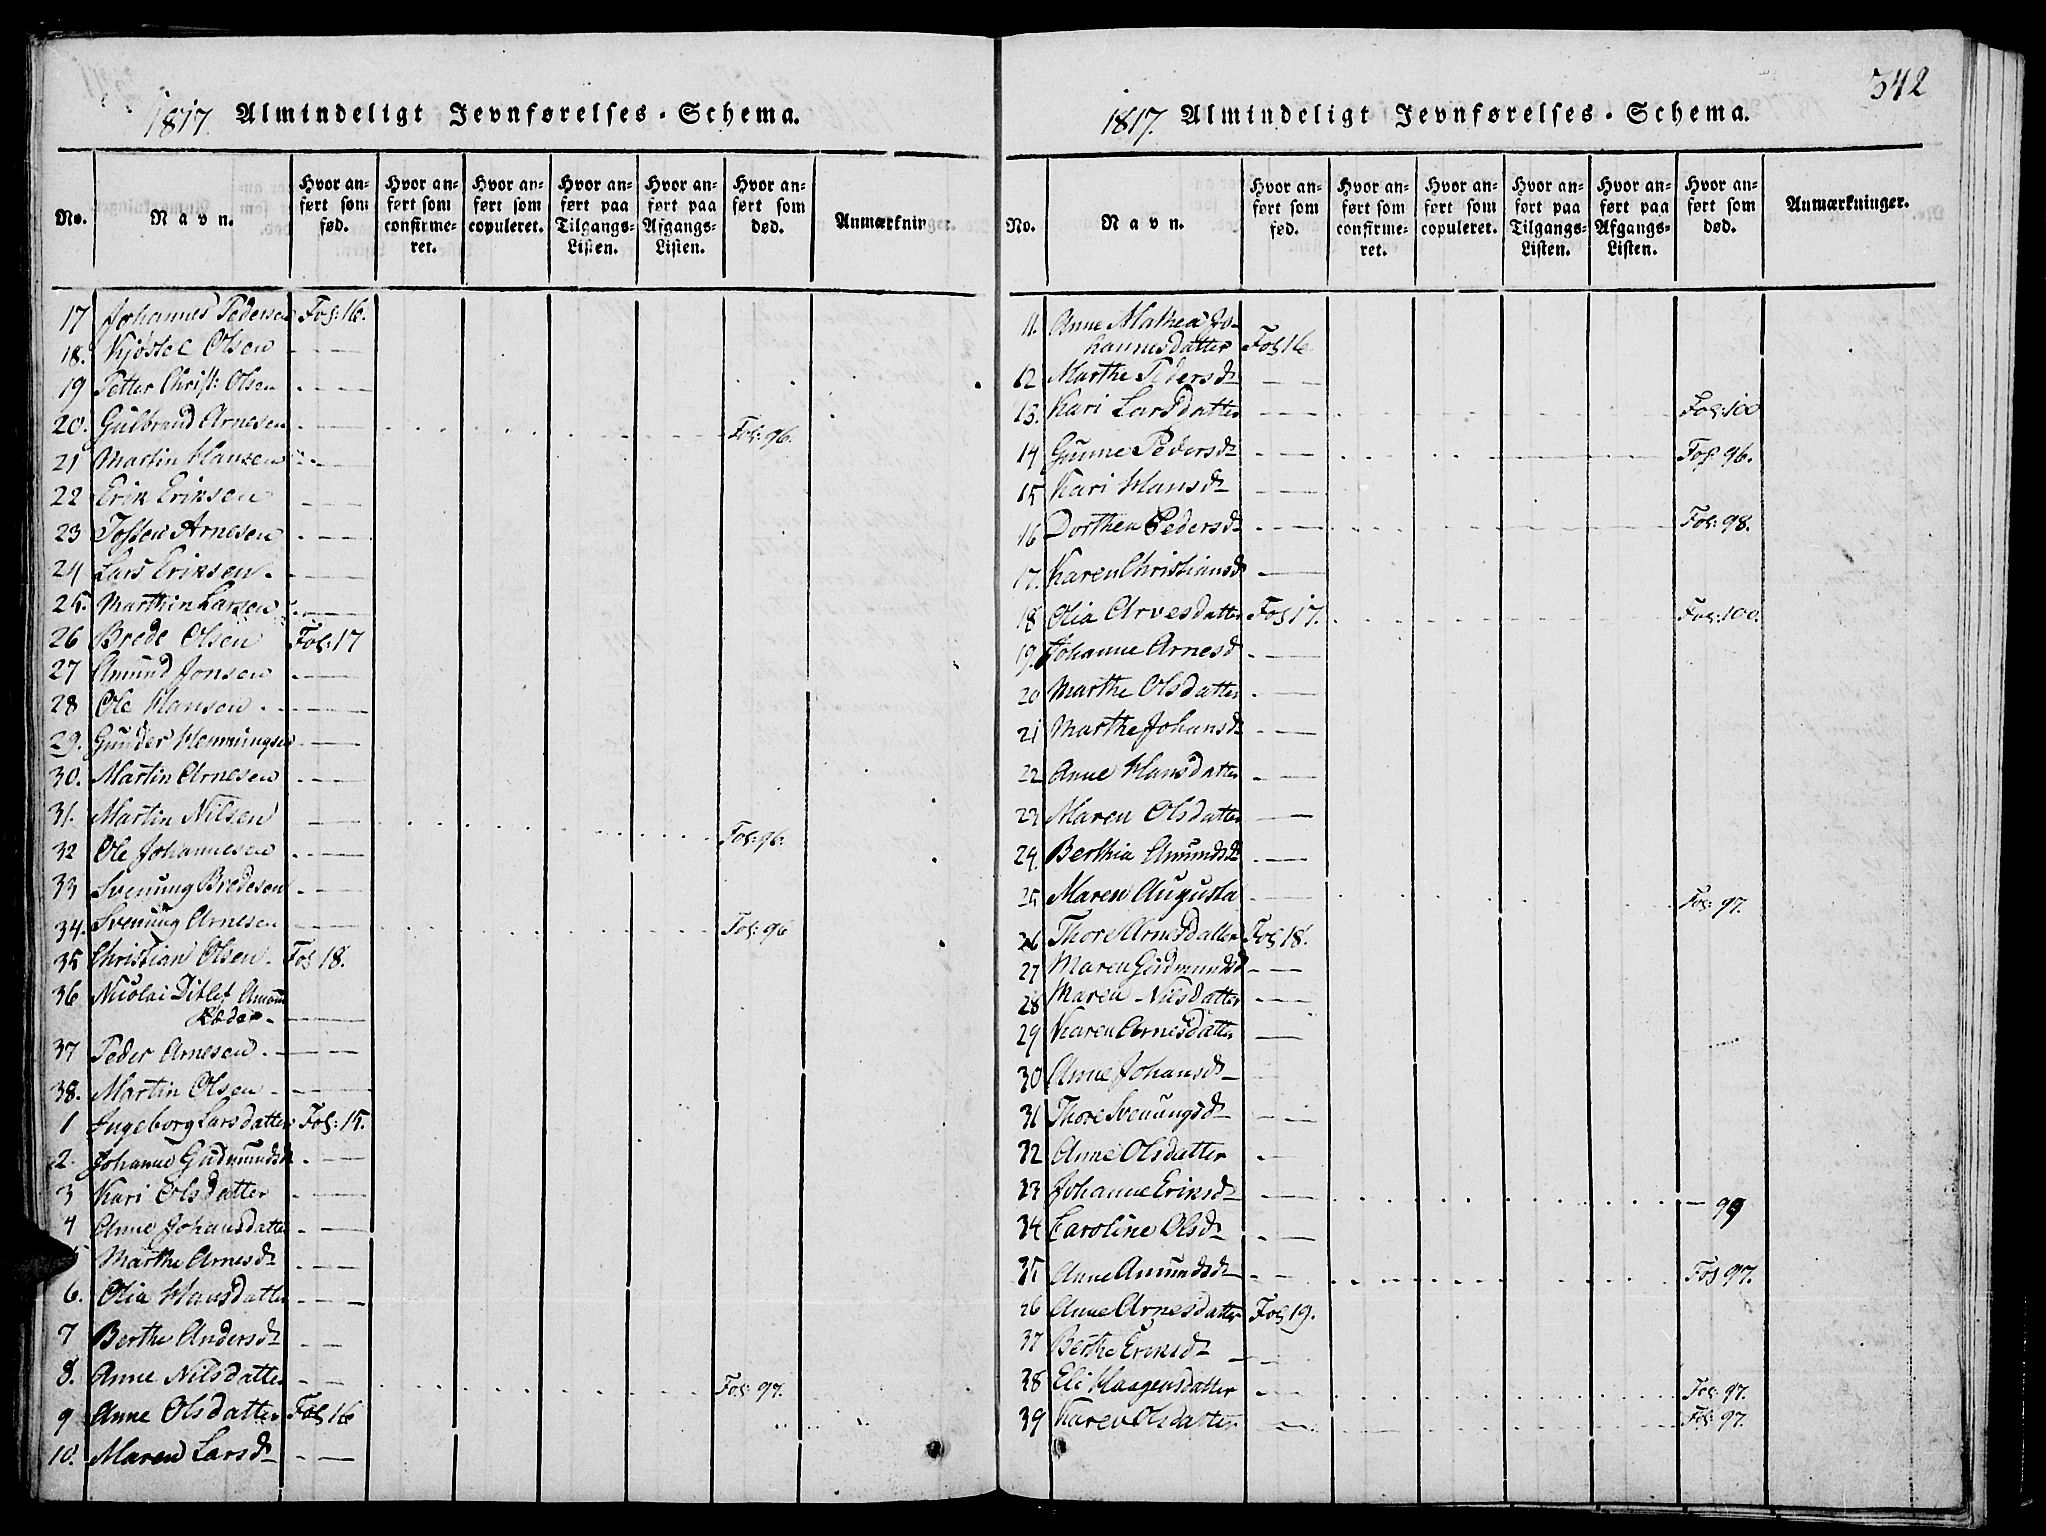 342
1817. Almindeligt Jevnførelses-Schema.
No. Navn. Hvor anført som fød. Hvor anført som confirmeret. Hvor anført som copuleret. Hvor anført paa Tilgangs-Listen. Hvor anført paa Afgangs-Listen. Hvor anført som død. Anmærkninger.
17 Johannes Pedersen Fol: 16.
18. Kjøstel Olsen - - -
19 Petter Christ: Olsen - - -
20. Gulbrand Arnesen - - - Fol: 96.
21 Martin Hansen - - -
22 Erik Eriksen - - -
23 Tossen Arnesen - - -
24 Lars Eriksen - - -
25. Marthin Larsen - - -
26 Brede Olsen Fol: 17
27 Amund Jonsen - - -
28 Ole Hansen - - -
29. Gunder Hemmingsen - - -
30. Martin Arnesen - - -
31. Martin Nilsen - - - Fol: 96.
32 Ole Johannesen - - -
33 Svenung Bredesen - - -
34. Svenung Arnesen - - - Fol: 96
35 Christian Olsen Fol 18.
36 Nicolai Ditlef
Røder - - -
37 Peder Arnesen - - -
38. Martin Olsen - - -
1 Ingeborg Larsdatter Fol: 15.
2. Johanne Gudmundsd - - -
3 Kari Olsdatter - - -
4 Anne Johansdatter - - -
Marthe Arnesd - - -
6. Olia Hansdatter - - -
7 Berthe Andersd - - -
8. Anne Nilsdatter - - - Fol: 97.
9 Anne Olsdatter Fol 16
10. Maren Larsd - - -
1817. Almindeligt Jevnførelses-Schema.
No. Navn. Hvor anført som fød. Hvor anført som confirmeret. Hvor anført som copuleret. Hvor anført paa Tilgangs-Listen. Hvor anført paa Afgangs-Listen. Hvor anført som død. Anmærkninger.
11. Anne Mathea Jo-
hannesdatter Fol 16
12 Marthe Pedersd - - -
13. Kari Larsdatter - - - Fol: 100
14 Gunne Pedersd - - - Fol: 96.
15 Kari Hansd - - -
16 Dorthea Pedersd - - - Fol: 98.
17. Karen Christiansd - - -
18 Olia Arvesdatter Fol 17. Fol: 100.
19. Johanne Arnesd - - -
20 Marthe Olsdatter - - -
21 Marthe Johansd - - -
22 Anne Hansdatter - - -
23 Maren Olsdatter - - -
24. Berthia Amundsd - - -
25 Maren Augusta - - - Fol: 97.
26 Thore Arnesdatter Fol 18.
27 Maren Gudmundsd - - -
28 Maren Nilsdatter - - -
29 Karen Arnesdatter - - -
30 Anne Johansd - - -
31 Thore Svenungsd - - -
32 Anne Olsdatter - - -
33 Johanne Eriksd - - - 99
34 Caroline Olsd - - -
35 Anne Amundsd - - - Fol 97.
36 Anne Arnesdatter Fol 19.
37 Berthe Eriksd - - -
38 Eli Haagensdatter - - - Fol: 97.
39 Karen Olsdatter - - - Fol: 97.